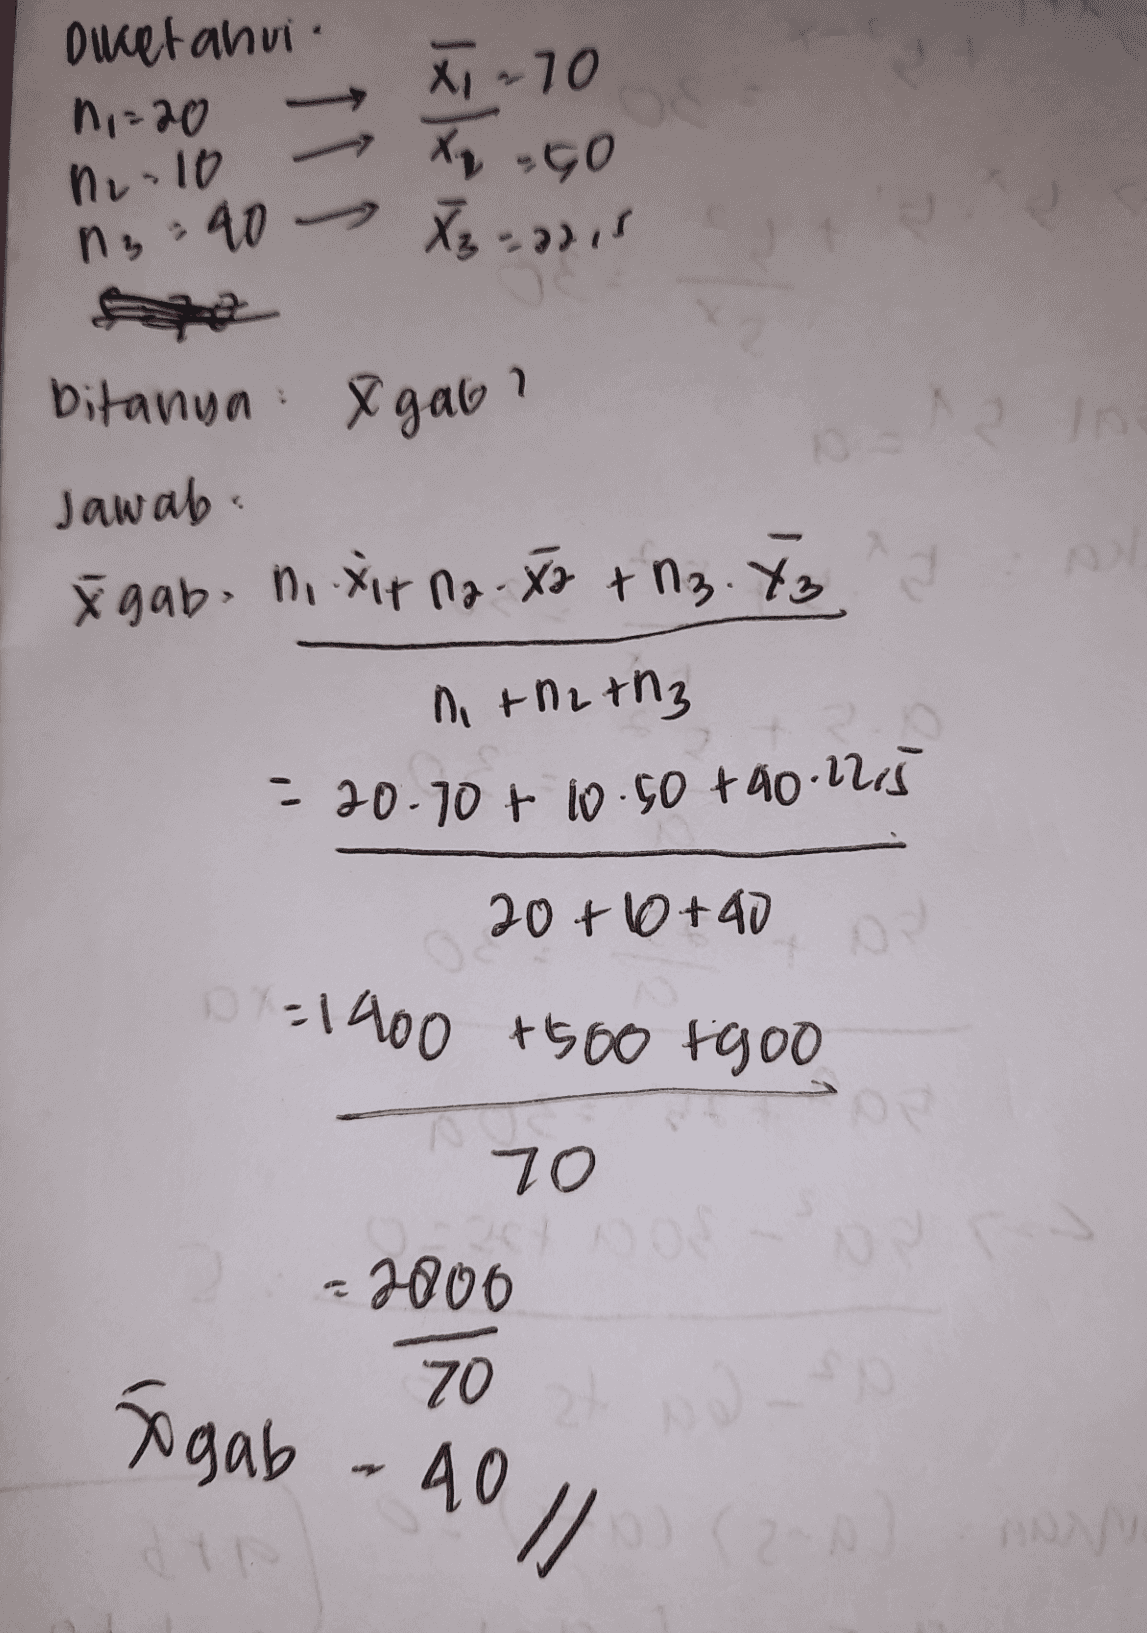 Diketahui:
n₁ = 20 → x̄₁ = 70
n₂ = 10 → x̄₂ = 50
n₃ = 40 → x̄₃ = 22,5
Ditanya: x̄ gab?
Jawab:
x̄ gab = n₁ . x̄₁ + n₂ . x̄₂ + n₃ . x̄₃
n₁ + n₂ + n₃
= 20 . 70 + 10 . 50 + 40 . 22,5
20 + 10 + 40
= 1400 + 500 + 900
70
= 2800
70
x̄ gab = 40 //